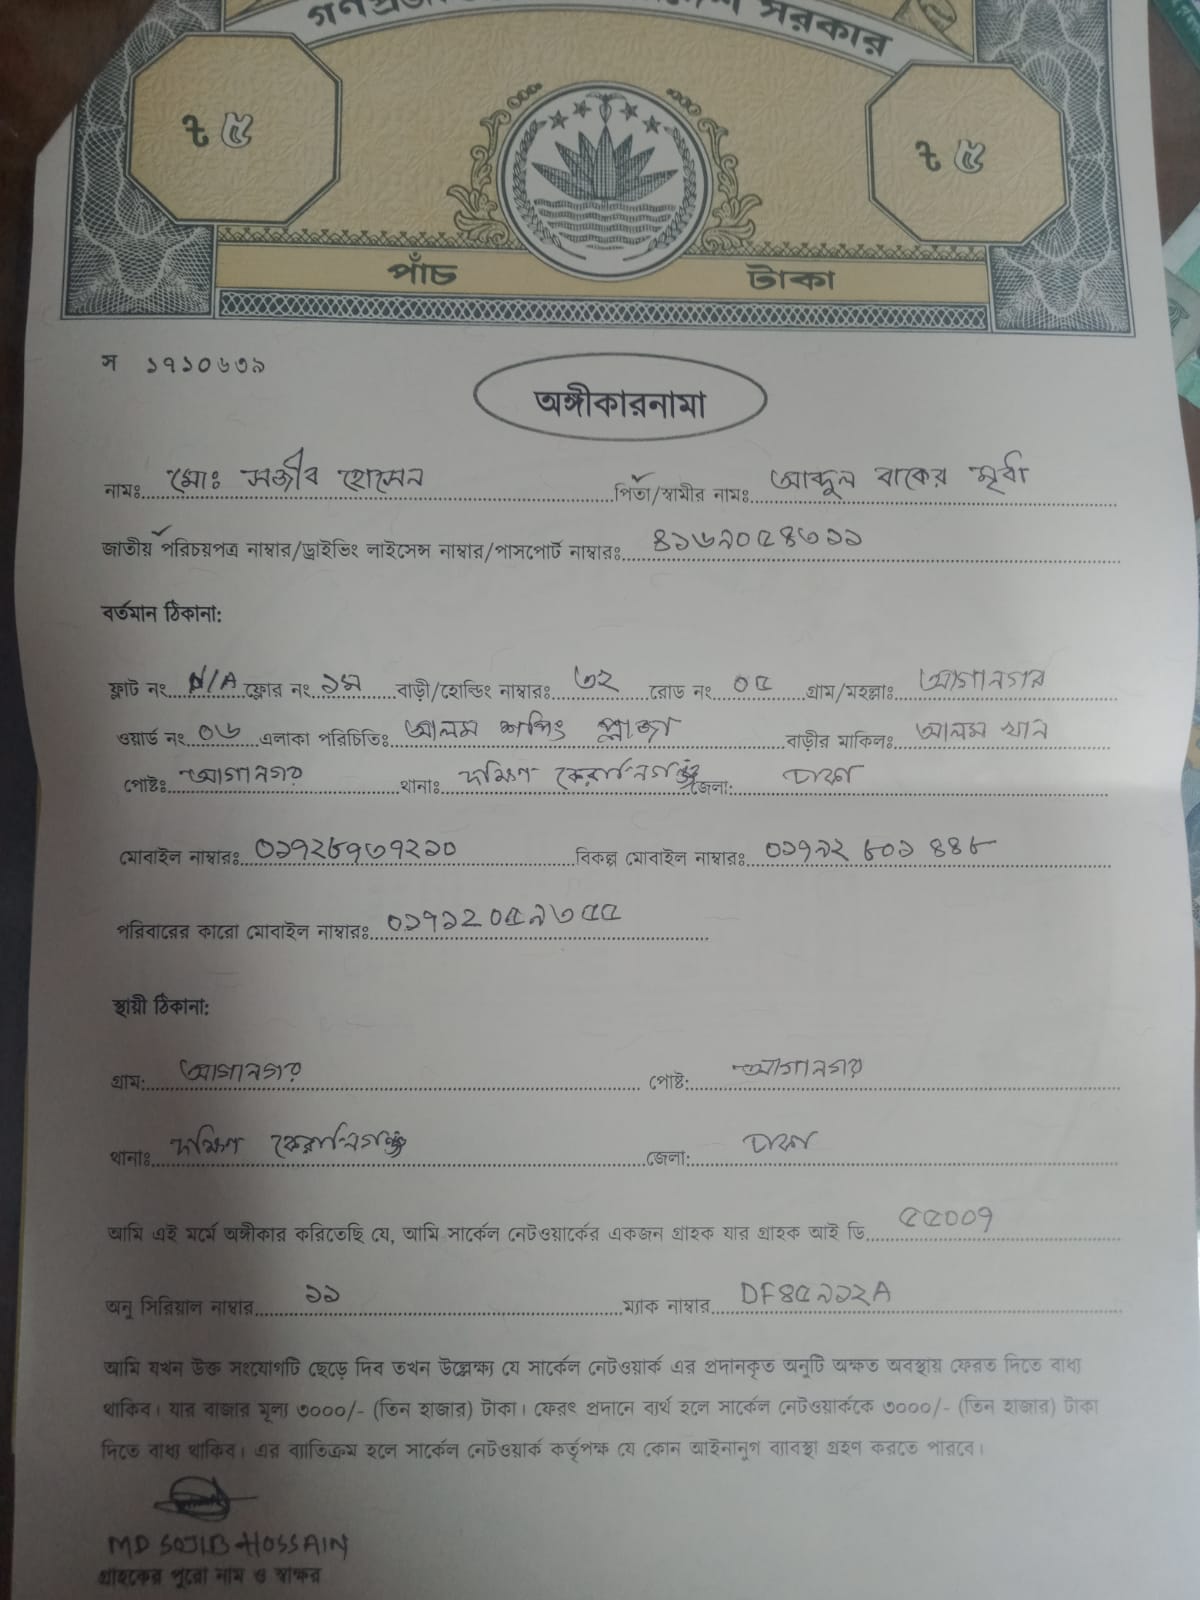 সরকার
৳ ৫
৳ ৫
পাঁচ টাকা
স ১৭১০৬৩৯
অঙ্গীকারনামা
নামঃ মোঃ সজীব হোসেন পিতা/স্বামীর নামঃ আব্দুল বাকের মৃর্ধা
জাতীয় পরিচয়পত্র নাম্বার/ড্রাইভিং লাইসেন্স নাম্বার/পাসপোর্ট নাম্বারঃ ৪১৬৯০৫৪৩১১
বর্তমান ঠিকানা:
ফ্লাট নং N/A ফ্লোর নং ১ম বাড়ী/হোল্ডিং নাম্বারঃ ৩২ রোড নং ০৫ গ্রাম/মহল্লাঃ আগানগর
ওয়ার্ড নং ০৬ এলাকা পরিচিতিঃ আলম শপিং প্লাজা বাড়ীর মাকিলঃ আলম খান
পোষ্টঃ আগানগর থানাঃ দক্ষিণ কেরানীগঞ্জ জেলা: ঢাকা
মোবাইল নাম্বারঃ ০১৭২৮৭৩৭২১০ বিকল্প মোবাইল নাম্বারঃ ০১৭৯২ ৮০১ ৪৪৮
পরিবারের কারো মোবাইল নাম্বারঃ ০১৭১২০৫৯৩৫৫
স্থায়ী ঠিকানা:
গ্রাম: আগানগর পোষ্ট: আগানগর
থানাঃ দক্ষিণ কেরানীগঞ্জ জেলা: ঢাকা
আমি এই মর্মে অঙ্গীকার করিতেছি যে, আমি সার্কেল নেটওয়ার্কের একজন গ্রাহক যার গ্রাহক আই ডি ৫৫০০৭
অনু সিরিয়াল নাম্বার ১১ ম্যাক নাম্বার DF৪৫৯১২A
আমি যখন উক্ত সংযোগটি ছেড়ে দিব তখন উল্লেক্ষ্য যে সার্কেল নেটওয়ার্ক এর প্রদানকৃত অনুটি অক্ষত অবস্থায় ফেরত দিতে বাধ্য
থাকিব। যার বাজার মূল্য ৩০০০/- (তিন হাজার) টাকা। ফেরৎ প্রদানে ব্যর্থ হলে সার্কেল নেটওয়ার্ককে ৩০০০/- (তিন হাজার) টাকা
দিতে বাধ্য থাকিব। এর ব্যাতিক্রম হলে সার্কেল নেটওয়ার্ক কর্তৃপক্ষ যে কোন আইনানুগ ব্যাবস্থা গ্রহণ করতে পারবে।
MD SOJIB HOSSAIN
গ্রাহকের পুরো নাম ও স্বাক্ষর